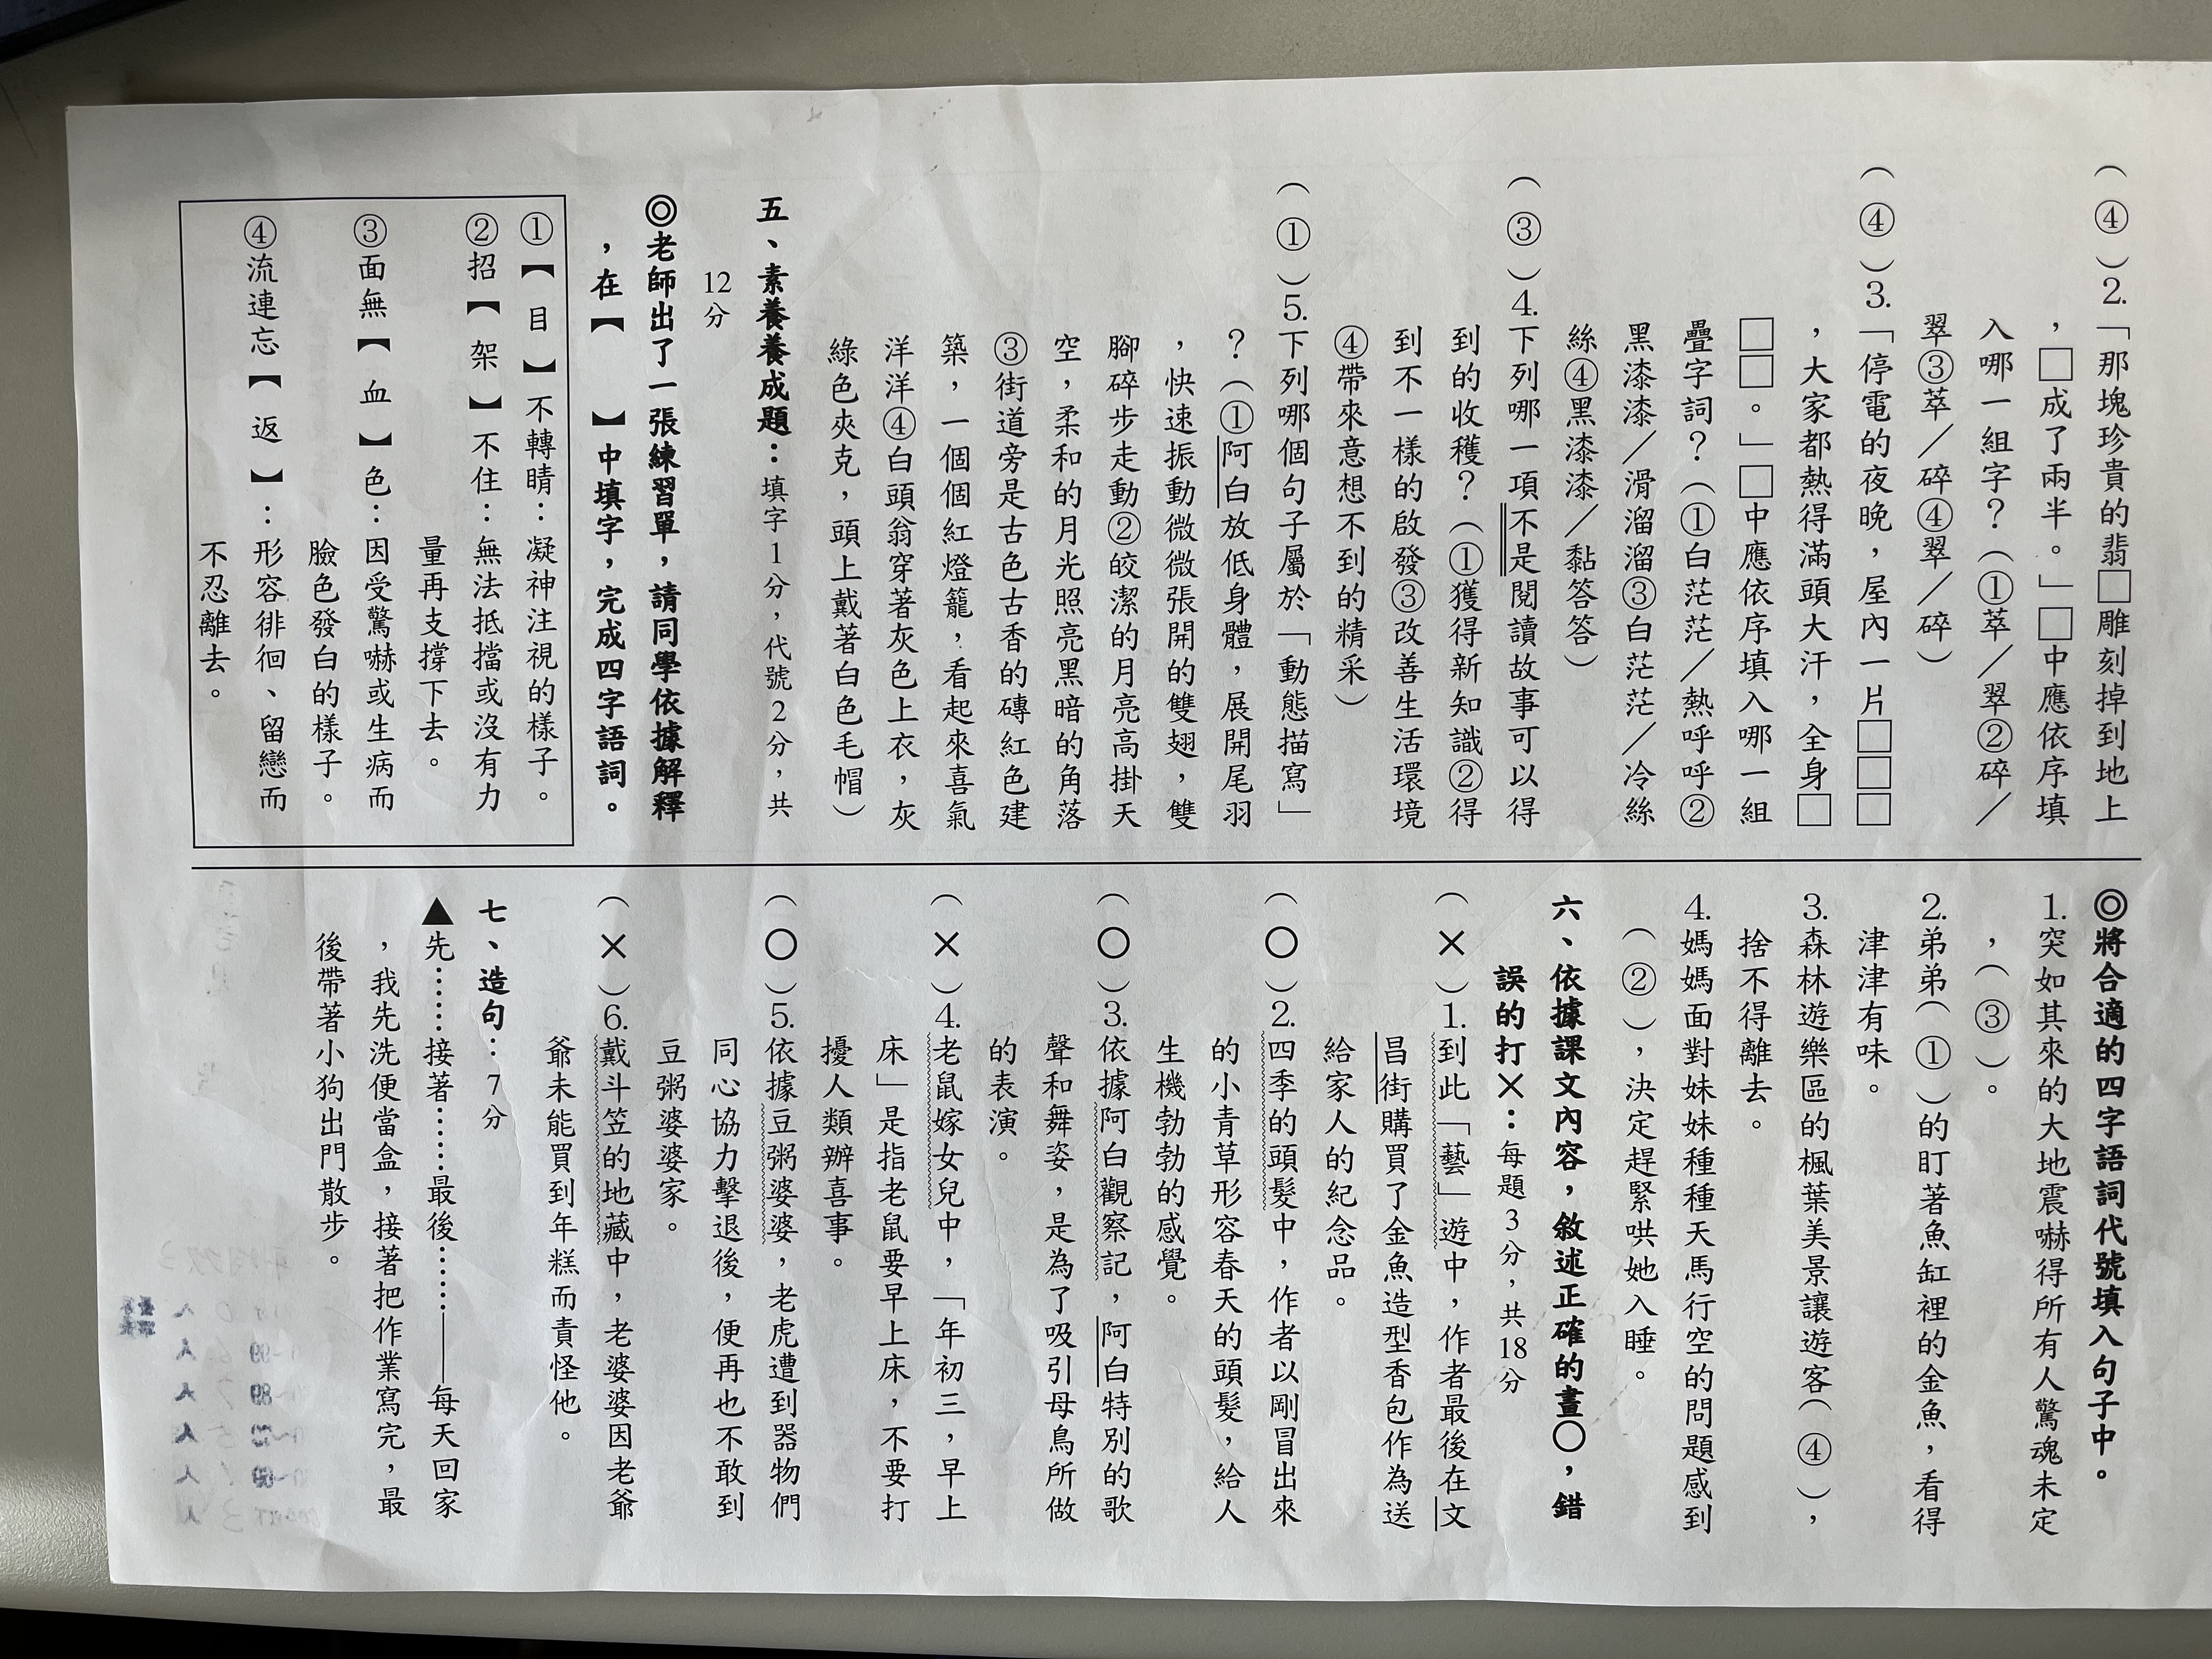 (④)2.「那塊珍貴的翡□雕刻掉到地上
，□成了兩半。」□中應依序填
入哪一組字？(①萃／翠②碎／
翠③萃／碎④翠／碎)
(④)3.「停電的夜晚，屋內一片□□□
，大家都熱得滿頭大汗，全身□
□□。」□中應依序填入哪一組
疊字詞？(①白茫茫／熱呼呼②
黑漆漆／滑溜溜③白茫茫／冷絲
絲④黑漆漆／黏答答)
(③)4.下列哪一項不是閱讀故事可以得
到的收穫？(①獲得新知識②得
到不一樣的啟發③改善生活環境
④帶來意想不到的精采)
(①)5.下列哪個句子屬於「動態描寫」
？(①阿白放低身體，展開尾羽
，快速振動微微張開的雙翅，雙
腳碎步走動②皎潔的月亮高掛天
空，柔和的月光照亮黑暗的角落
③街道旁是古色古香的磚紅色建
築，一個個紅燈籠，看起來喜氣
洋洋④白頭翁穿著灰色上衣，灰
綠色夾克，頭上戴著白色毛帽)
五、素養養成題：填字1分，代號2分，共
12分
◎老師出了一張練習單，請同學依據解釋
，在【　】中填字，完成四字語詞。
①【目】不轉睛：凝神注視的樣子。
②招【架】不住：無法抵擋或沒有力
量再支撐下去。
③面無【血】色：因受驚嚇或生病而
臉色發白的樣子。
④流連忘【返】：形容徘徊、留戀而
不忍離去。
◎將合適的四字語詞代號填入句子中。
1.突如其來的大地震嚇得所有人驚魂未定
，(③)。
2.弟弟(①)的盯著魚缸裡的金魚，看得
津津有味。
3.森林遊樂區的楓葉美景讓遊客(④)，
捨不得離去。
4.媽媽面對妹妹種種天馬行空的問題感到
(②)，決定趕緊哄她入睡。
六、依據課文內容，敘述正確的畫○，錯
誤的打×：每題3分，共18分
(×)1.到此「藝」遊中，作者最後在文
昌街購買了金魚造型香包作為送
給家人的紀念品。
(○)2.四季的頭髮中，作者以剛冒出來
的小青草形容春天的頭髮，給人
生機勃勃的感覺。
(○)3.依據阿白觀察記，阿白特別的歌
聲和舞姿，是為了吸引母鳥所做
的表演。
(×)4.老鼠嫁女兒中，「年初三，早上
床」是指老鼠要早上床，不要打
擾人類辦喜事。
(○)5.依據豆粥婆婆，老虎遭到器物們
同心協力擊退後，便再也不敢到
豆粥婆婆家。
(×)6.戴斗笠的地藏中，老婆婆因老爺
爺未能買到年糕而責怪他。
七、造句：7分
▲先……接著……最後……——每天回家
，我先洗便當盒，接著把作業寫完，最
後帶著小狗出門散步。